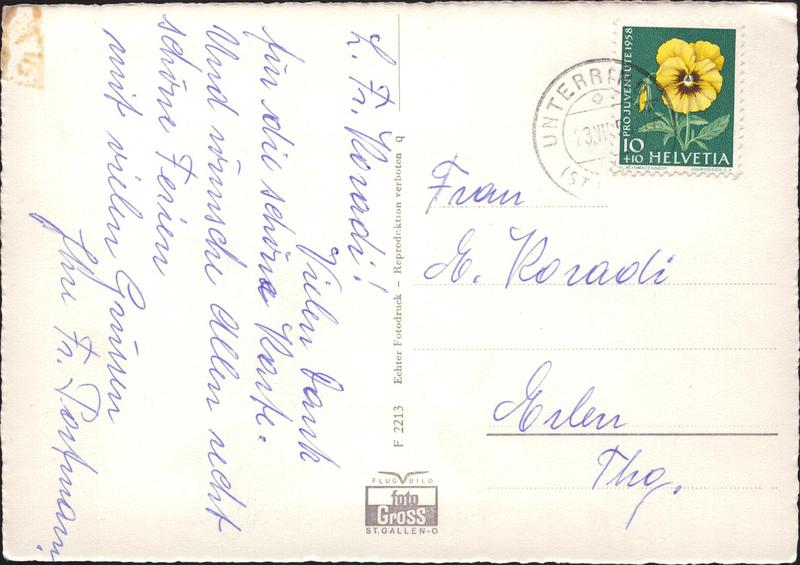 L. Fr. Koradi!
Vielen Dank
für die schöne Karte.
Und wünsche Allen recht
schöne Ferien
mit vielen Grüssen
Ihre Fr. Portmann
F 2213 Echter Fotodruck - Reproduktion verboten q
FLUGBILD
foto
Gross
ST. GALLEN-O
UNTERR
(ST.
PRO JUVENTUTE 1958
10
+10 HELVETIA
COURVOISIER S.A.
Frau
E. Koradi
Erlen
Thg.